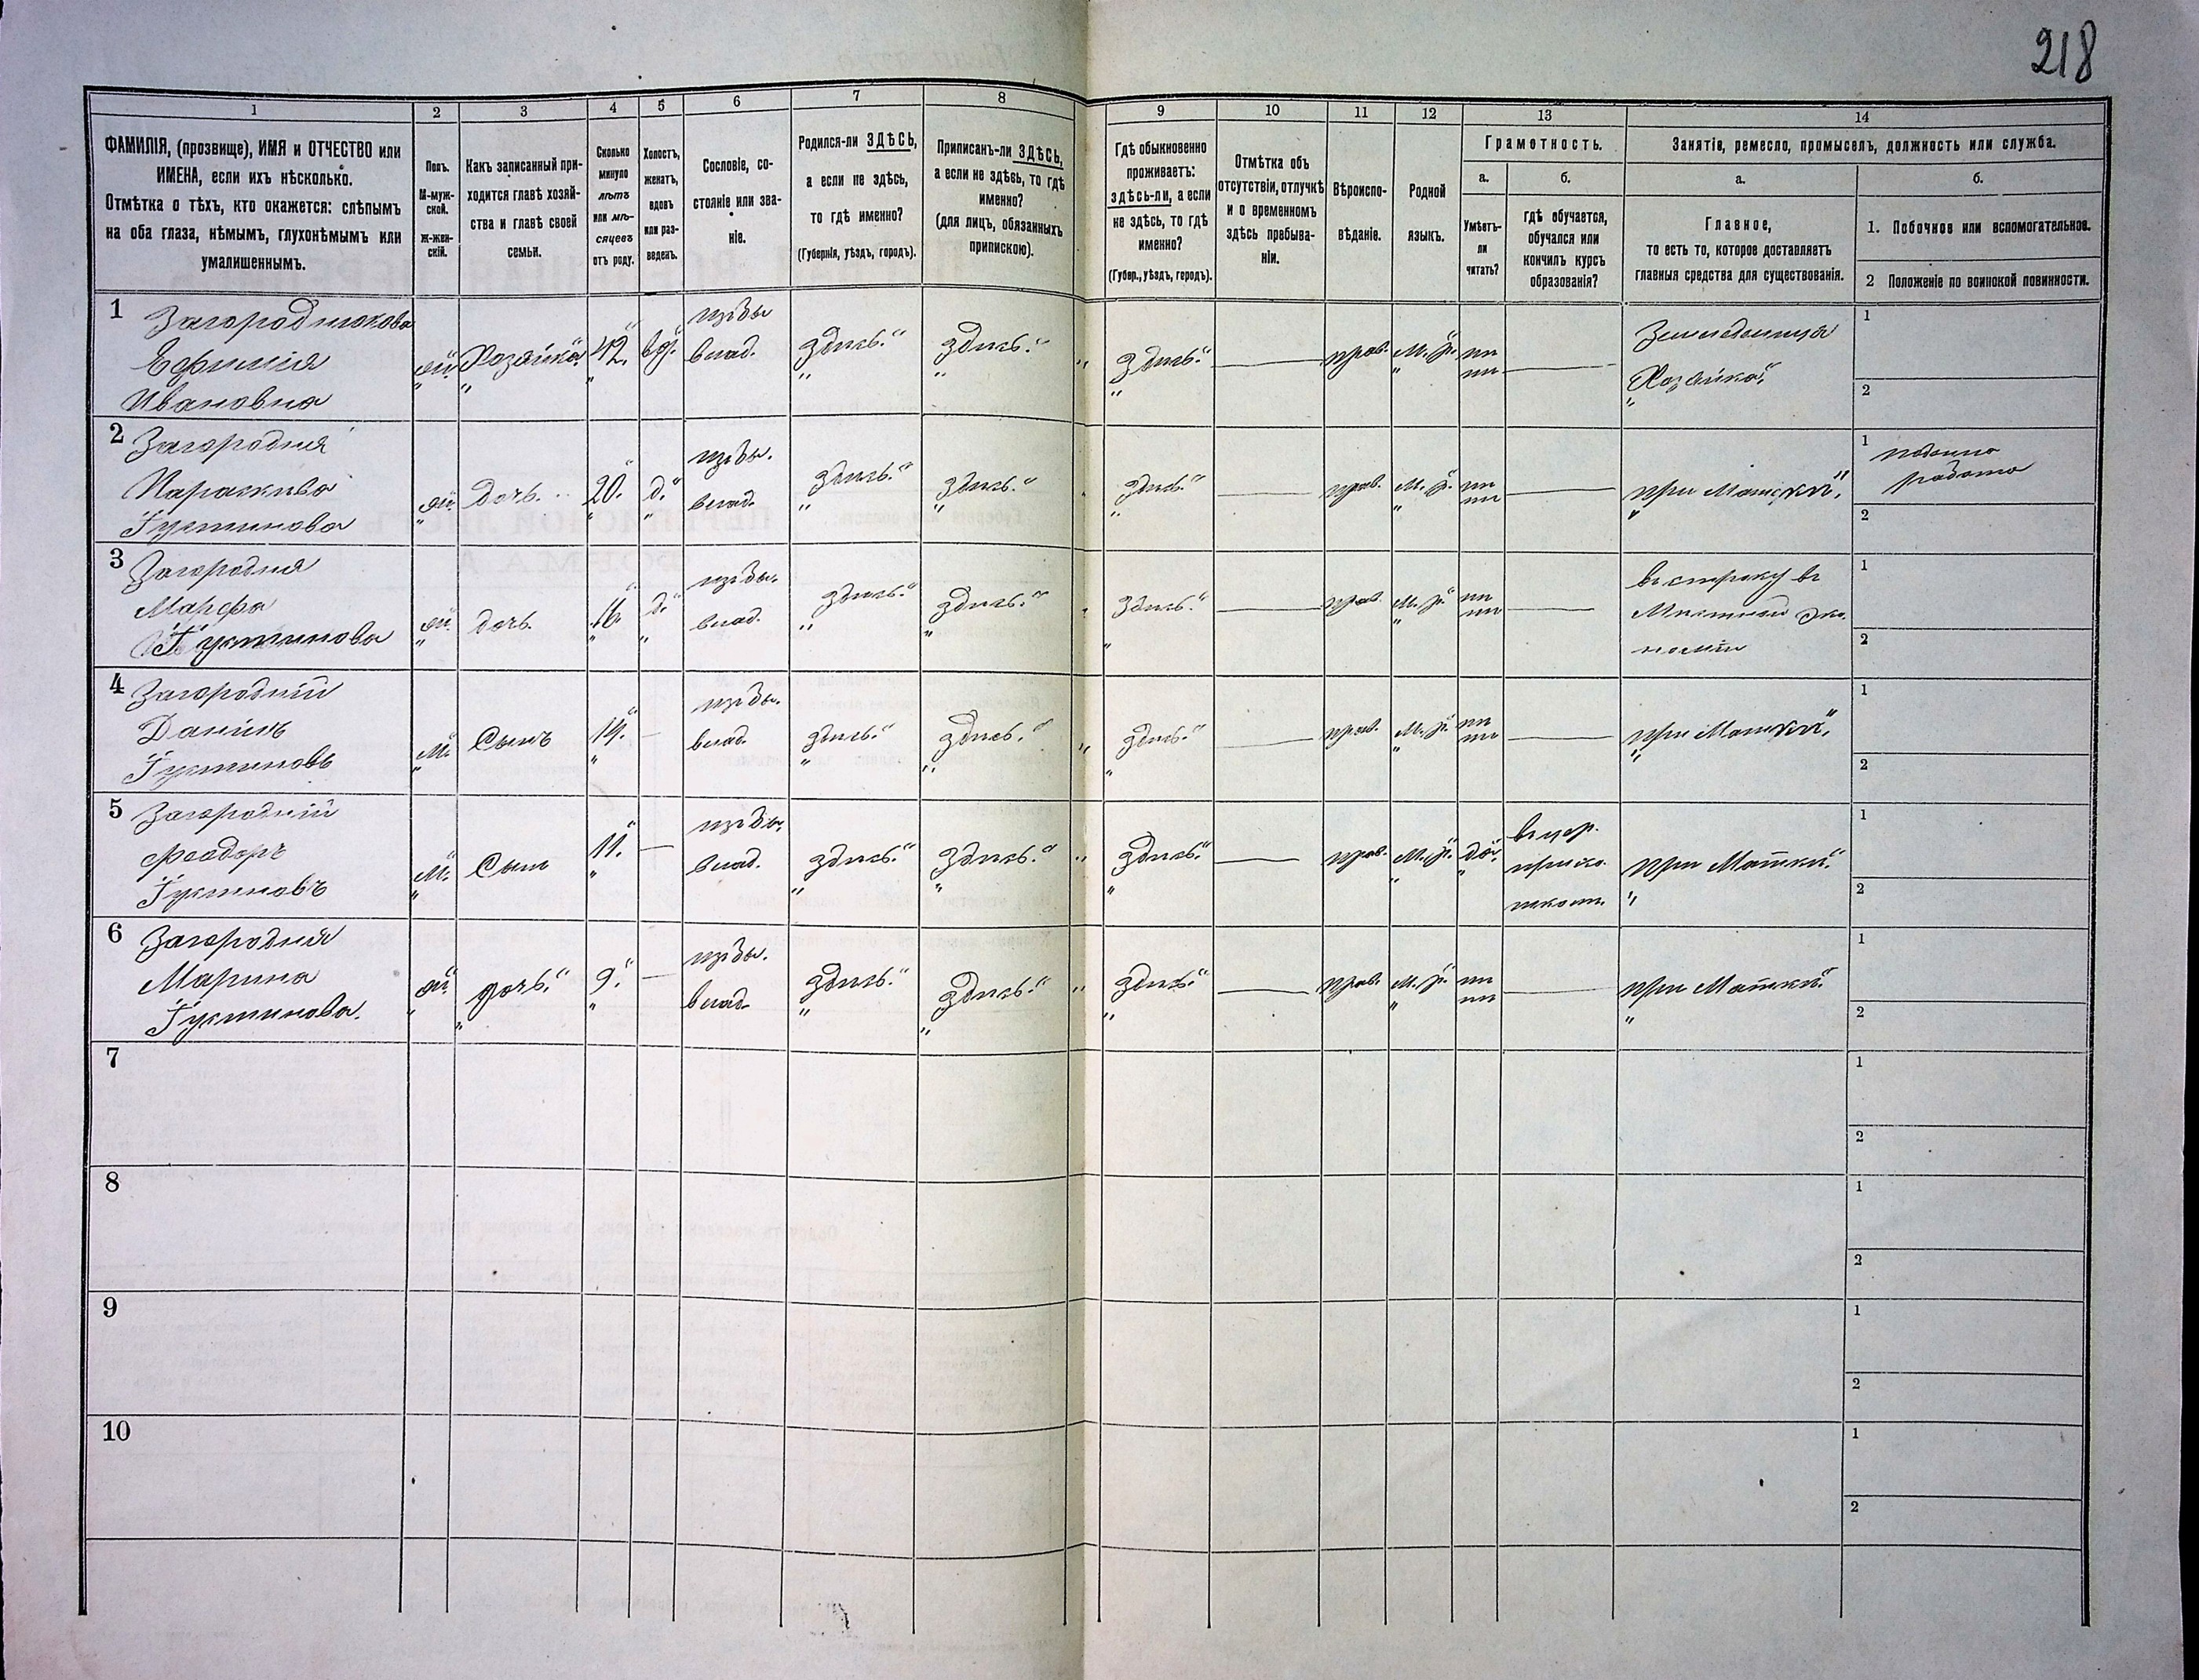 218
1
2
3
4
5
6
7
8
9
10
11
12
13
14
ФАМИЛІЯ, (прозвище), ИМЯ и ОТЧЕСТВО или
ИМЕНА, если ихъ нѣсколько.
Отмѣтка о тѣхъ, кто окажется: слѣпымъ
на оба глаза, нѣмымъ, глухонѣмымъ или
умалишеннымъ.
Полъ.
М-муж-
ской.
Ж-жен-
скій.
Какъ записанный при-
ходится главѣ хозяй-
ства и главѣ своей
семьи.
Сколько
минуло
лѣтъ
или мѣ-
сяцевъ
отъ роду.
Холостъ,
женатъ,
вдовъ
или раз-
веденъ.
Сословіе, со-
стояніе или зва-
ніе.
Родился-ли ЗДѢСЬ,
а если не здѣсь,
то гдѣ именно?
(Губернія, уѣздъ, городъ).
Приписанъ-ли ЗДѢСЬ,
а если не здѣсь, то гдѣ
именно?
(для лицъ, обязанныхъ
припискою).
Гдѣ обыкновенно
проживаетъ:
здѣсь-ли, а если
не здѣсь, то гдѣ
именно?
(Губер., уѣздъ, городъ).
Отмѣтка объ
отсутствіи, отлучкѣ
и о временномъ
здѣсь пребыва-
ніи.
Вѣроиспо-
вѣданіе.
Родной
языкъ.
Грамотность.
а.
Умѣетъ-
ли
читать?
б.
гдѣ обучается,
обучался или
кончилъ курсъ
образованія?
Занятіе, ремесло, промыселъ, должность или служба.
а.
Главное,
то есть то, которое доставляетъ
главныя средства для существованія.
б.
1. Побочное или вспомогательное.
2 Положеніе по воинской повинности.
1
Загороднюкова
Ефимія
Ивановна
ж.
Хозяйка
42.
вд.
изъ вы
влад.
здѣсь.
здѣсь.
здѣсь.
прав.
М. р.
нѣ
нѣ
Хозяйка
1
2
2
Загородня
Параскива
Густинова
ж.
Дочь.
20.
д.
влад.
здѣсь.
здѣсь.
здѣсь.
прав.
М. р.
при Маткѣ.
1 поденно
работа
2
3
Загородня
Марфа
Густинова
ж.
дочь.
16.
д.
влад.
здѣсь.
здѣсь.
здѣсь.
прав.
М. р.
въ строку въ
1
2
4
Загородній
Данило
Густиновъ
М.
Сынъ
14.
влад.
здѣсь.
здѣсь.
здѣсь.
прав.
М. р.
при Маткѣ.
1
2
5
Загородній
Феодоръ
Густиновъ
М.
Сынъ
11.
влад.
здѣсь.
здѣсь.
здѣсь.
прав.
М. р.
да
въ цер.
прихо.
школѣ.
при Маткѣ.
1
2
6
Загородня
Марина
Густинова.
ж.
дочь.
9.
влад.
здѣсь.
здѣсь.
здѣсь.
прав.
М. р.
при Маткѣ.
1
2
7
1
2
8
1
2
9
1
2
10
1
2